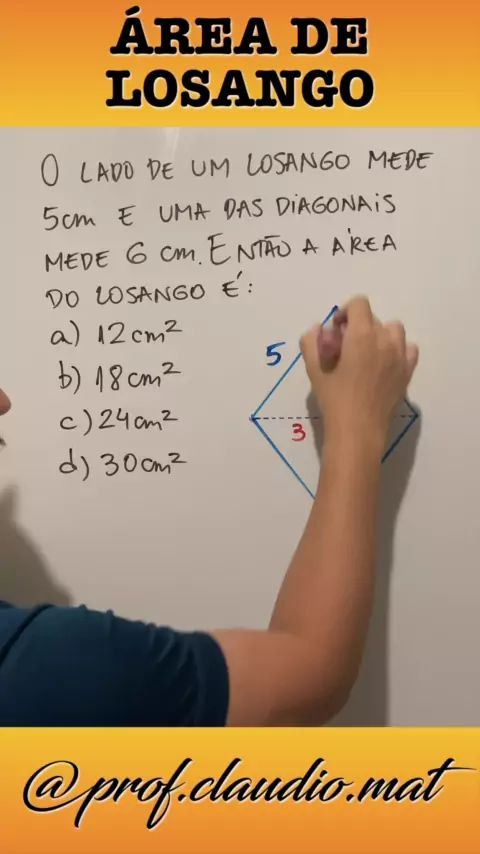 ÁREA DE
LOSANGO
O LADO DE UM LOSANGO MEDE
5cm E UMA DAS DIAGONAIS
MEDE 6 cm. ENTÃO A ÁREA
DO LOSANGO É:
a) 12cm²
b) 18cm²
c) 24cm²
d) 30cm²
5
3
@prof.claudio.mat